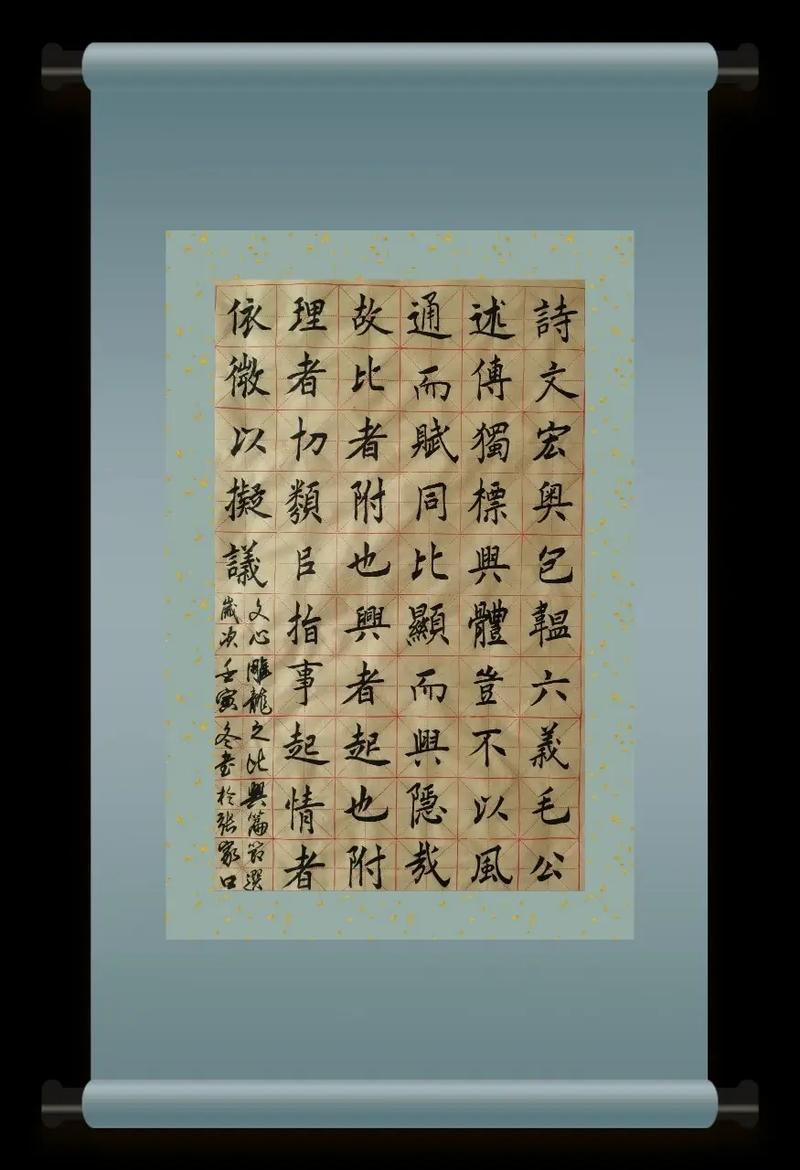 詩文宏奥包韞六義毛公
述傳獨標興體豈不以風
通而賦同比顯而興隱哉
故比者附也興者起也附
理者切類㠯指事起情者
依微以擬議
文心雕龍之比興篇節選
歲次壬寅冬書於張家口